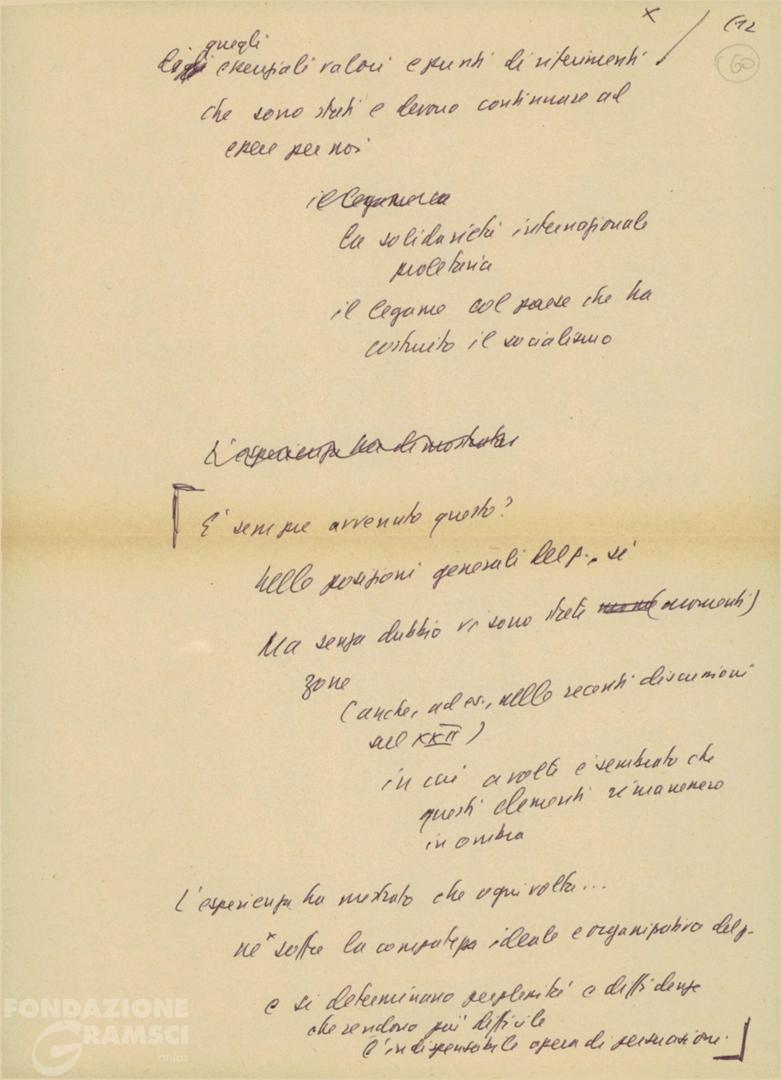 x / C12
60
quegli
essenziali valori e punti di riferimenti
che sono stati e devono continuare ad
essere per noi
il legame
la solidarietà internazionale
proletaria
il legame col paese che ha
costruito il socialismo
L'esperienza ha dimostrato
E' sempre avvenuto questo?
Nelle posizioni generali del p., sì
Ma senza dubbio vi sono state (momenti)
zone
(anche, ad es., nelle recenti discussioni
sul XXII)
in cui a volte è sembrato che
questi elementi rimanessero
in ombra
L'esperienza ha mostrato che ogni volta...
ne soffre la compatezza ideale e organizzativa del p.
e si determinano perplessità e diffidenze
che rendono più difficile
l'indispensabile opera di persuasione.
FONDAZIONE
GRAMSCI
onlus